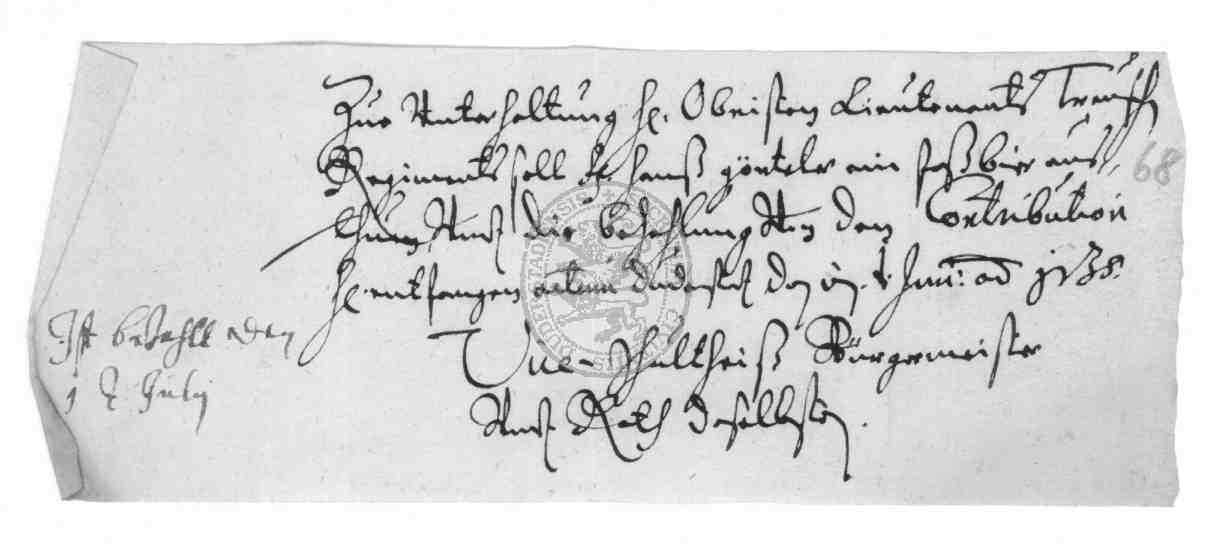 Zue Unterhaltung H. Obristen Lieutenants Treusch
Regiments soll H. Hanß görteler ein faß bier auß
thuen Undt die bezahlung Von den Contribution
H. entfangen actum duderstadt den Juni: ao 1638.
Schultheiß Bürgermeister
Undt Rath daselbsten.
Ist bezahlt den
1 Julij
68